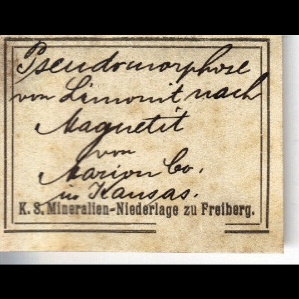 Pseudomorphose
von Limonit nach
Magnetit
von
Marion Co.
in Kansas.
K. S. Mineralien-Niederlage zu Freiberg.